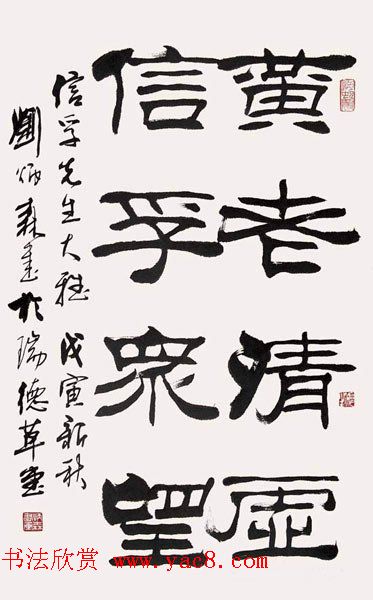 黃老清虛
信孚衆望
信孚先生大雅 戊寅新秋
劉炳森書於瑞德草堂
书法欣赏 www.yac8.com